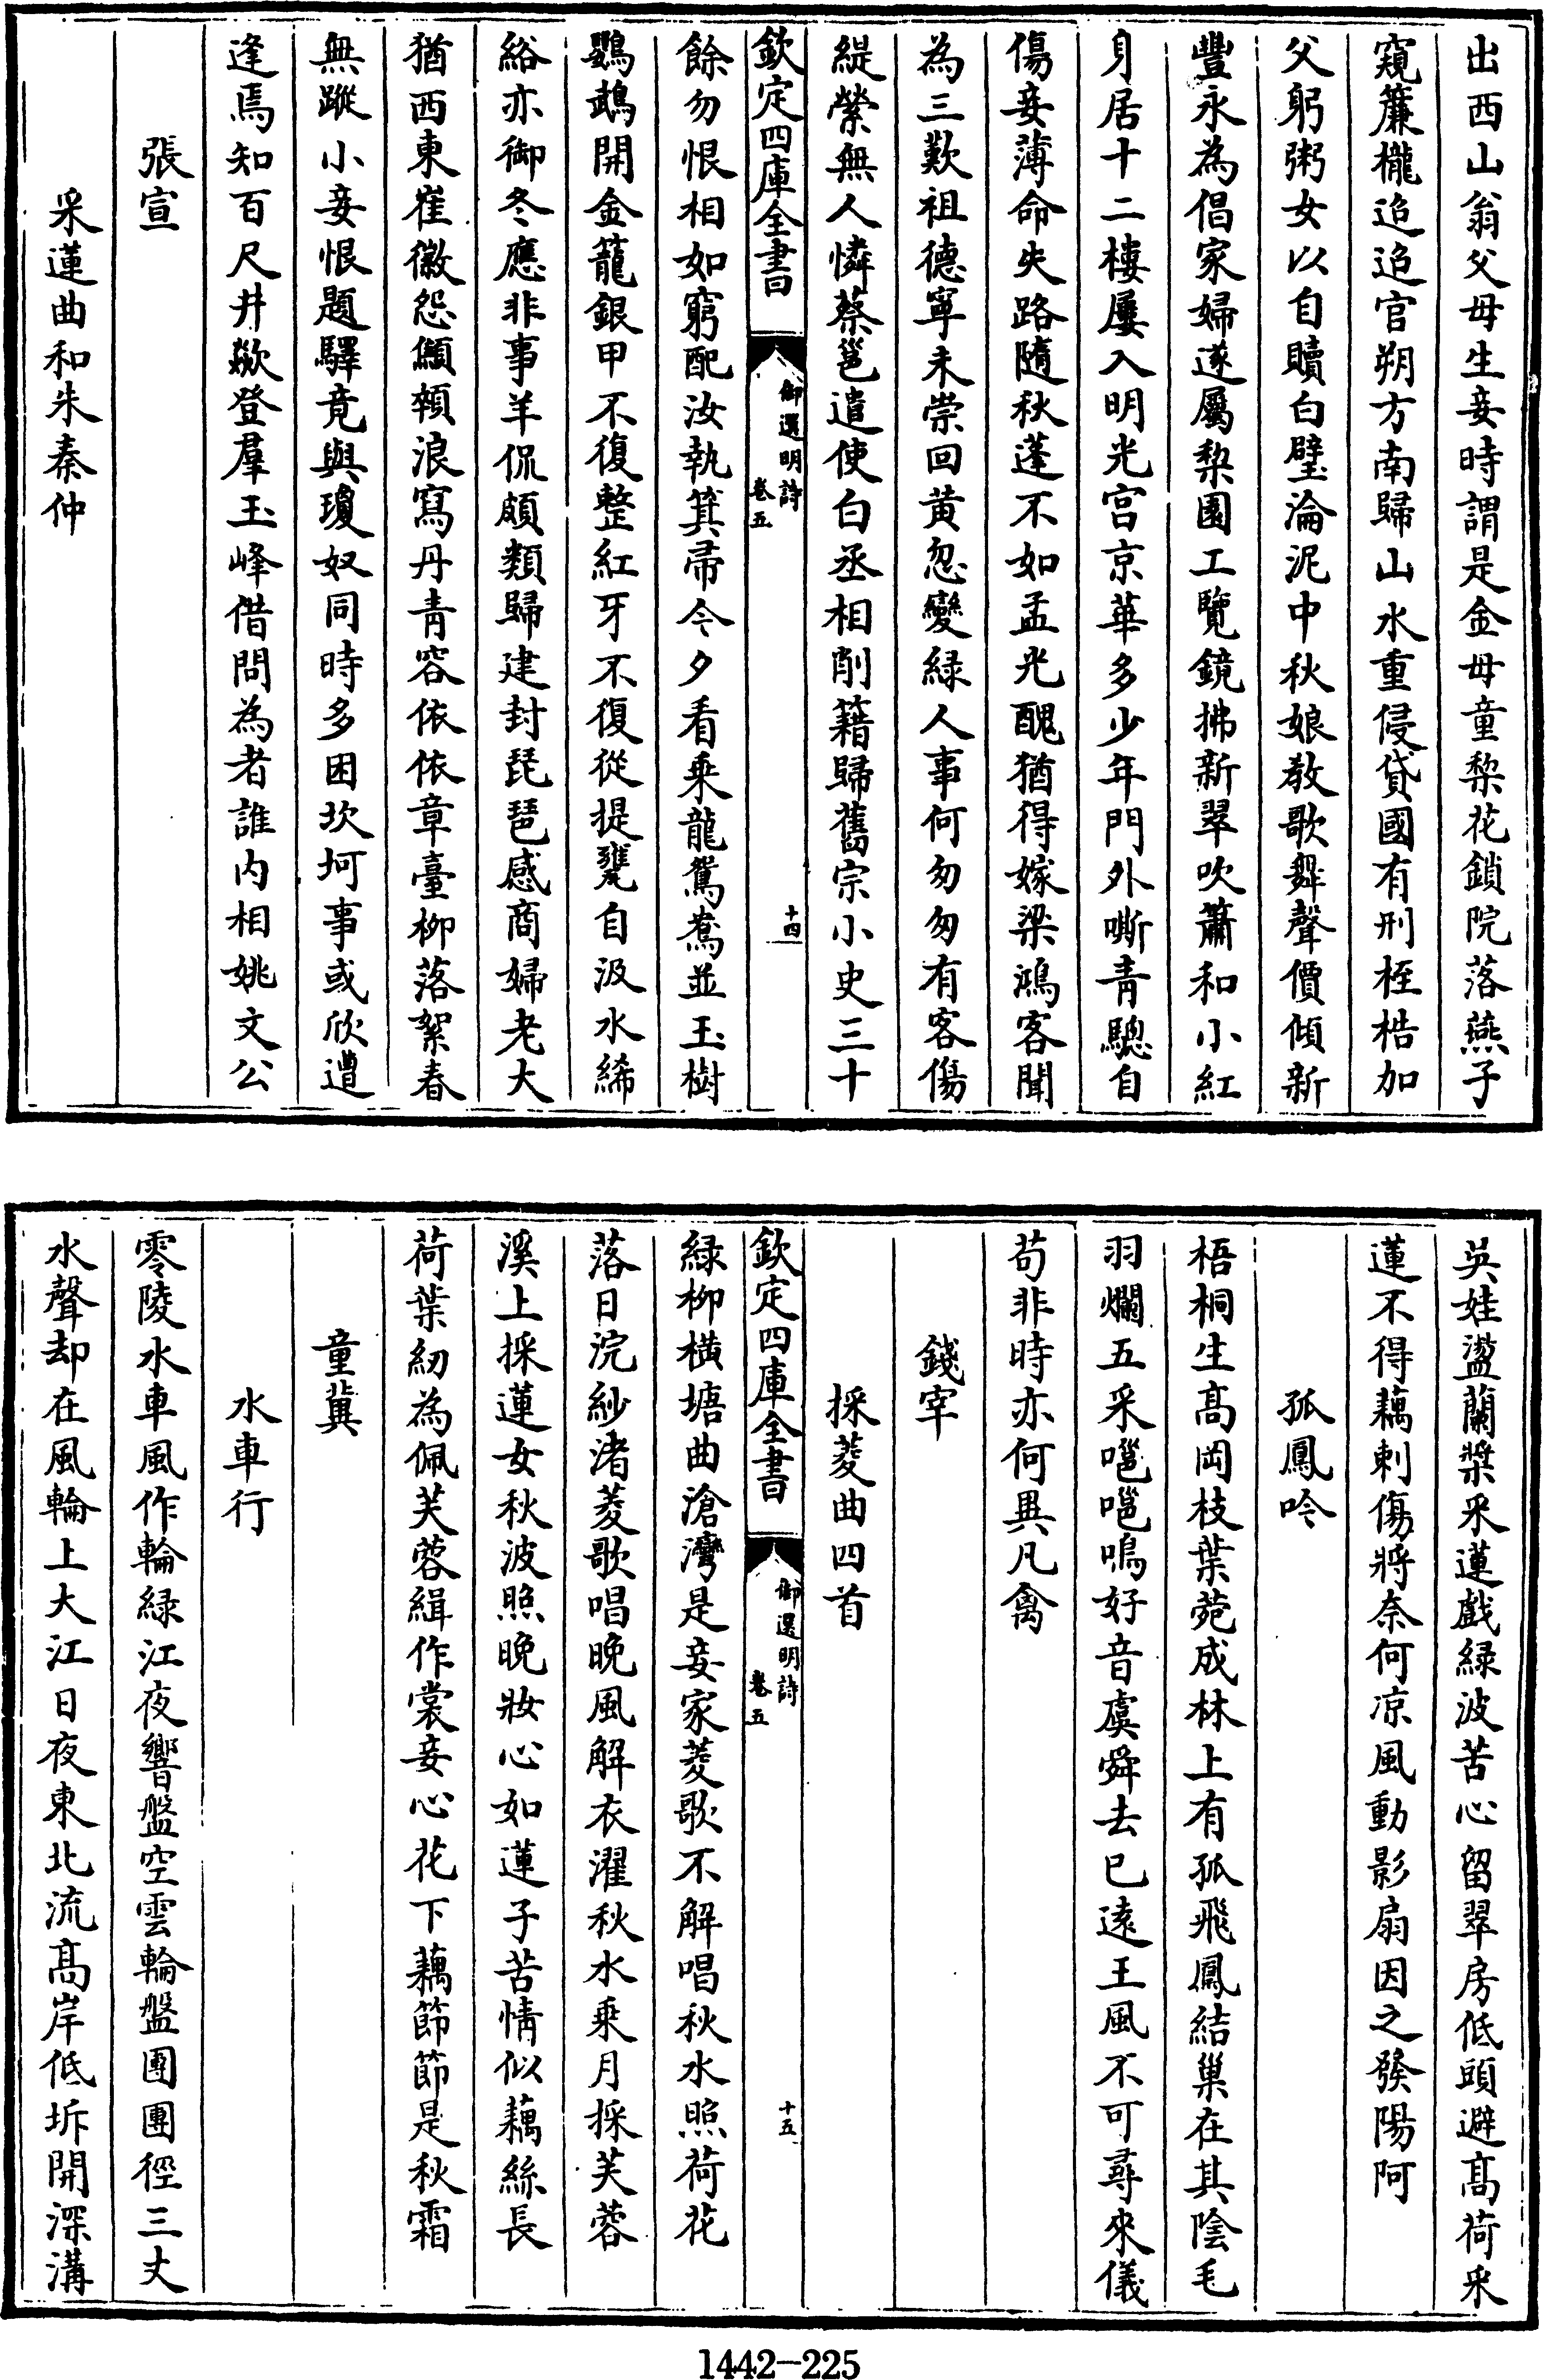 出西山翁父母生妾時謂是金母童梨花鎖院落燕子
窺簾櫳迨迨官朔方南歸山水重侵貸國有刑桎梏加
父躬粥女以自贖白璧淪泥中秋娘敎歌舞聲價傾新
豐永為倡家婦遂屬梨園工覽鏡拂新翠吹簫和小紅
身居十二樓屢入明光宮京華多少年門外嘶青驄自
傷妾薄命失路隨秋蓬不如孟光醜猶得嫁梁鴻客聞
為三歎祖德寧未崇回黄忽變緑人事何匆匆有客傷
緹縈無人憐蔡邕遣使白丞相削籍歸舊宗小史三十
欽定四庫全書 御選明詩 卷五 十四
餘勿恨相如窮配汝執箕帚今夕看乘龍鴛鴦並玉樹
鸚鵡開金籠銀甲不復整紅牙不復從提甕自汲水絺
綌亦御冬應非事羊侃頗類歸建封琵琶感商婦老大
猶西東崔徽怨顱頰浪寫丹青容依依章臺柳落絮春
無蹤小妾恨題驛竟與瓊奴同時多困坎坷事或欣遭
逢焉知百尺井歘登羣玉峰借問為者誰内相姚文公
張宣
采蓮曲和朱秦仲
吳娃盪蘭槳采蓮戲緑波苦心留翠房低頭避髙荷采
蓮不得藕刺傷將奈何凉風動影扇因之發陽阿
孤鳳吟
梧桐生髙岡枝葉菀成林上有孤飛鳳結巢在其陰毛
羽爛五采嗈嗈鳴好音虞舜去已遠王風不可尋來儀
苟非時亦何異凡禽
錢宰
採菱曲四首
欽定四庫全書 御選明詩 卷五 十五
緑柳橫塘曲滄灣是妾家菱歌不解唱秋水照荷花
落日浣紗渚菱歌唱晚風解衣濯秋水乘月採芙蓉
溪上採蓮女秋波照晚妝心如蓮子苦情似藕絲長
荷葉紉為佩芙蓉緝作裳妾心花下藕節節是秋霜
童冀
水車行
零陵水車風作輪緑江夜響盤空雲輪盤團團徑三丈
水聲却在風輪上大江日夜東北流髙岸低坼開深溝
1442-225